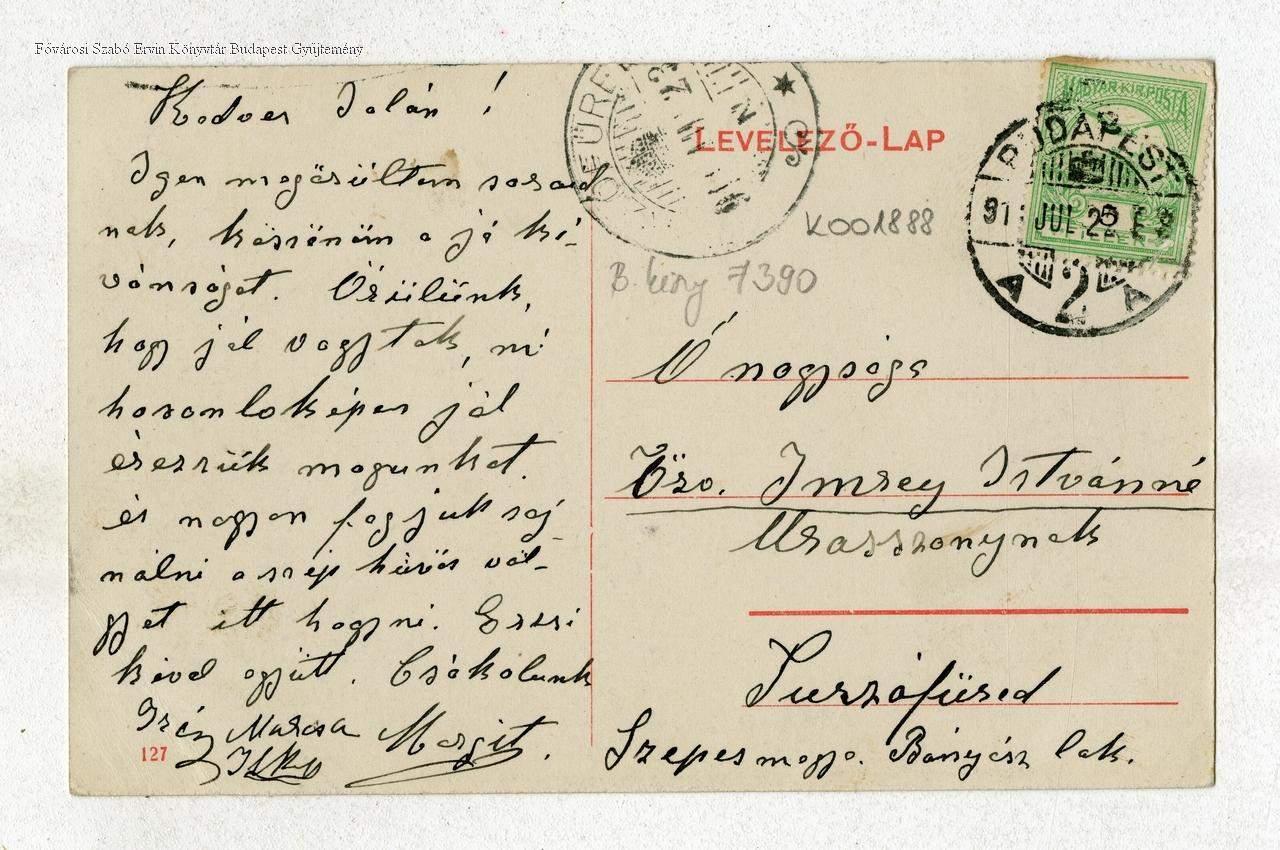 Fővárosi Szabó Ervin Könyvtár Budapest Gyűjtemény
Kedves Jolán !
Igen megörültem soraid
nak, köszönöm a jó kí-
vánságot. Örülünk,
hogy jól vagytok, mi
hasonlóképen jól
érezzük magunkat
és nagyon fogjuk saj-
nálni a szép hűvös völ-
gyet itt hagyni. Erzsi
kével együtt. Csókolunk
Irén Mariska Margit.
Ilka
127
LEVELEZŐ-LAP
K001888
B. 7390
MAGYAR KIR. POSTA
BUDAPEST
JUL 25
2
A A
Ó nagysága
Özv. Imrey Istvánné
Urasszonynak
Tuszófüred
Szepes megye. Bányász lak.